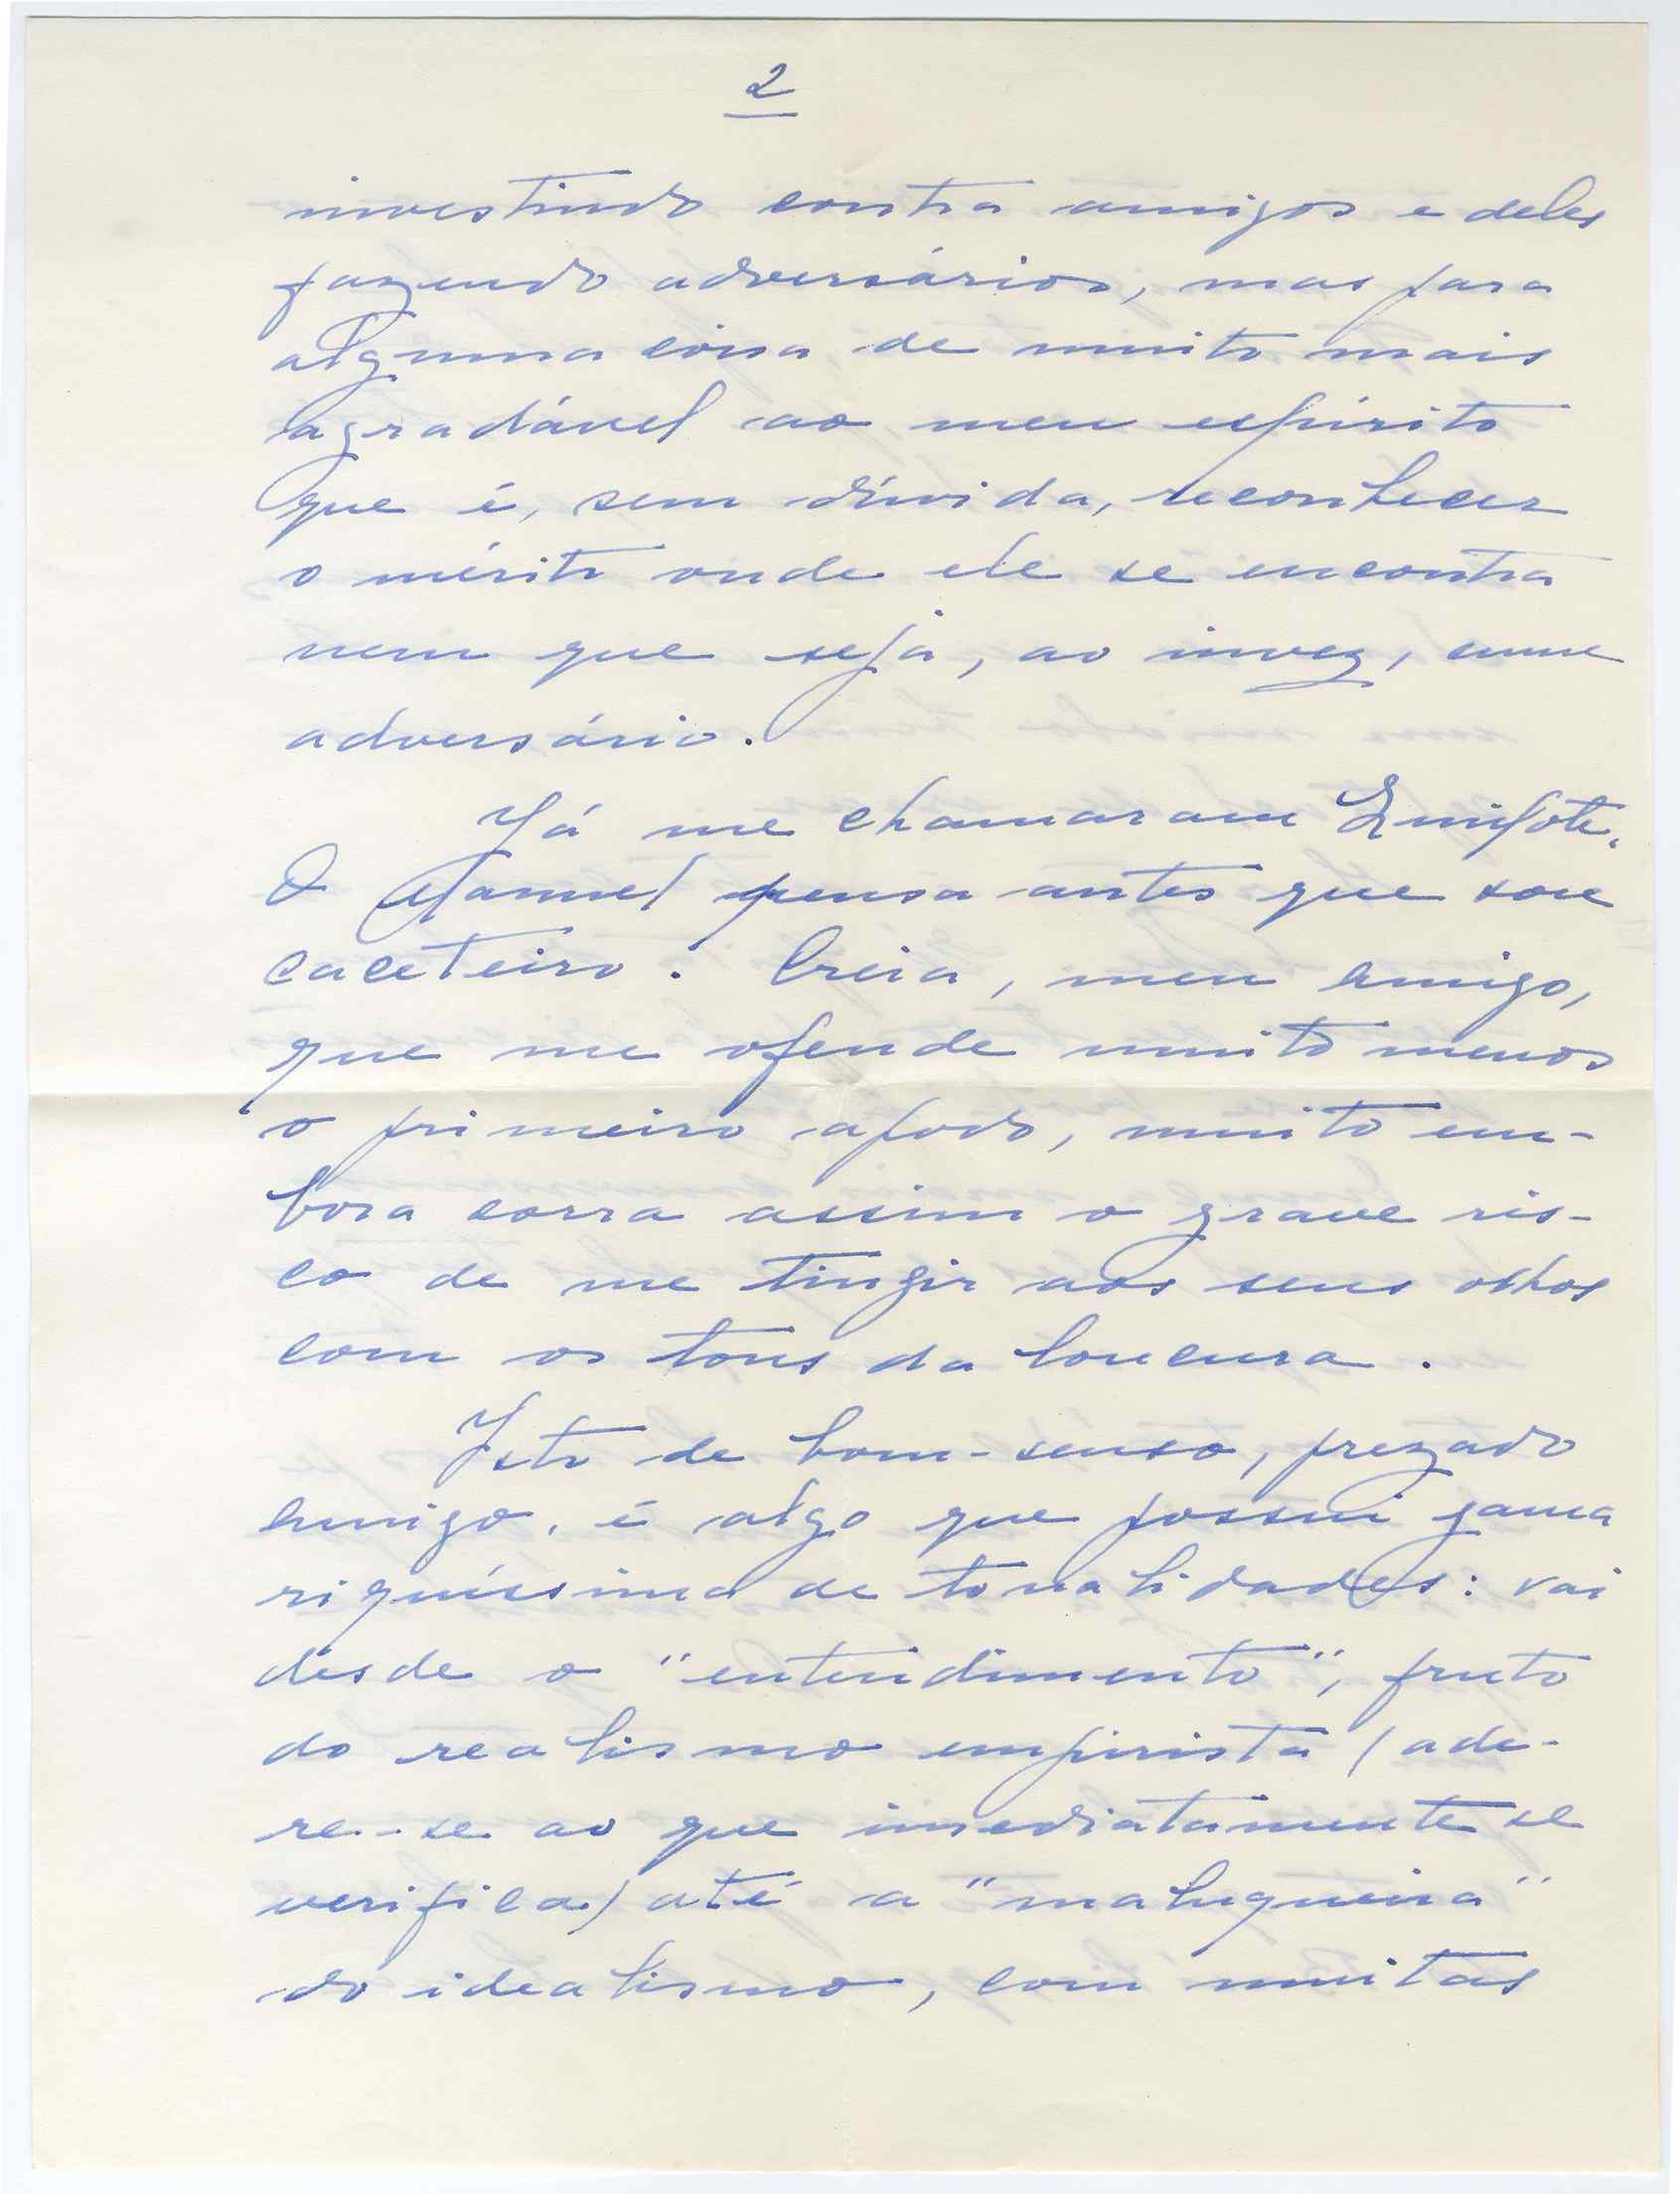 2
investindo contra amigos e deles
fazendo adversários, mas para
alguma coisa de muito mais
agradável ao meu espírito
que é, sem dúvida, reconhecer
o mérito onde ele se encontra
nem que seja, ao invez, num
adversário.
Já me chamaram Quixote.
O Manuel pensa antes que sou
caceteiro. Creia, meu amigo,
que me ofende muito menos
o primeiro apodo, muito em-
bora corra assim o grave ris-
co de me tingir aos seus olhos
com os tons da loucura.
Isto de bom-senso, prezado
amigo, é algo que possui gama
riquíssima de tonalidades: vai
desde o "entendimento", fruto
do realismo empirista (ade-
re-se ao que imediatamente se
verifica) até a "maluqueira"
do idealismo, com muitas